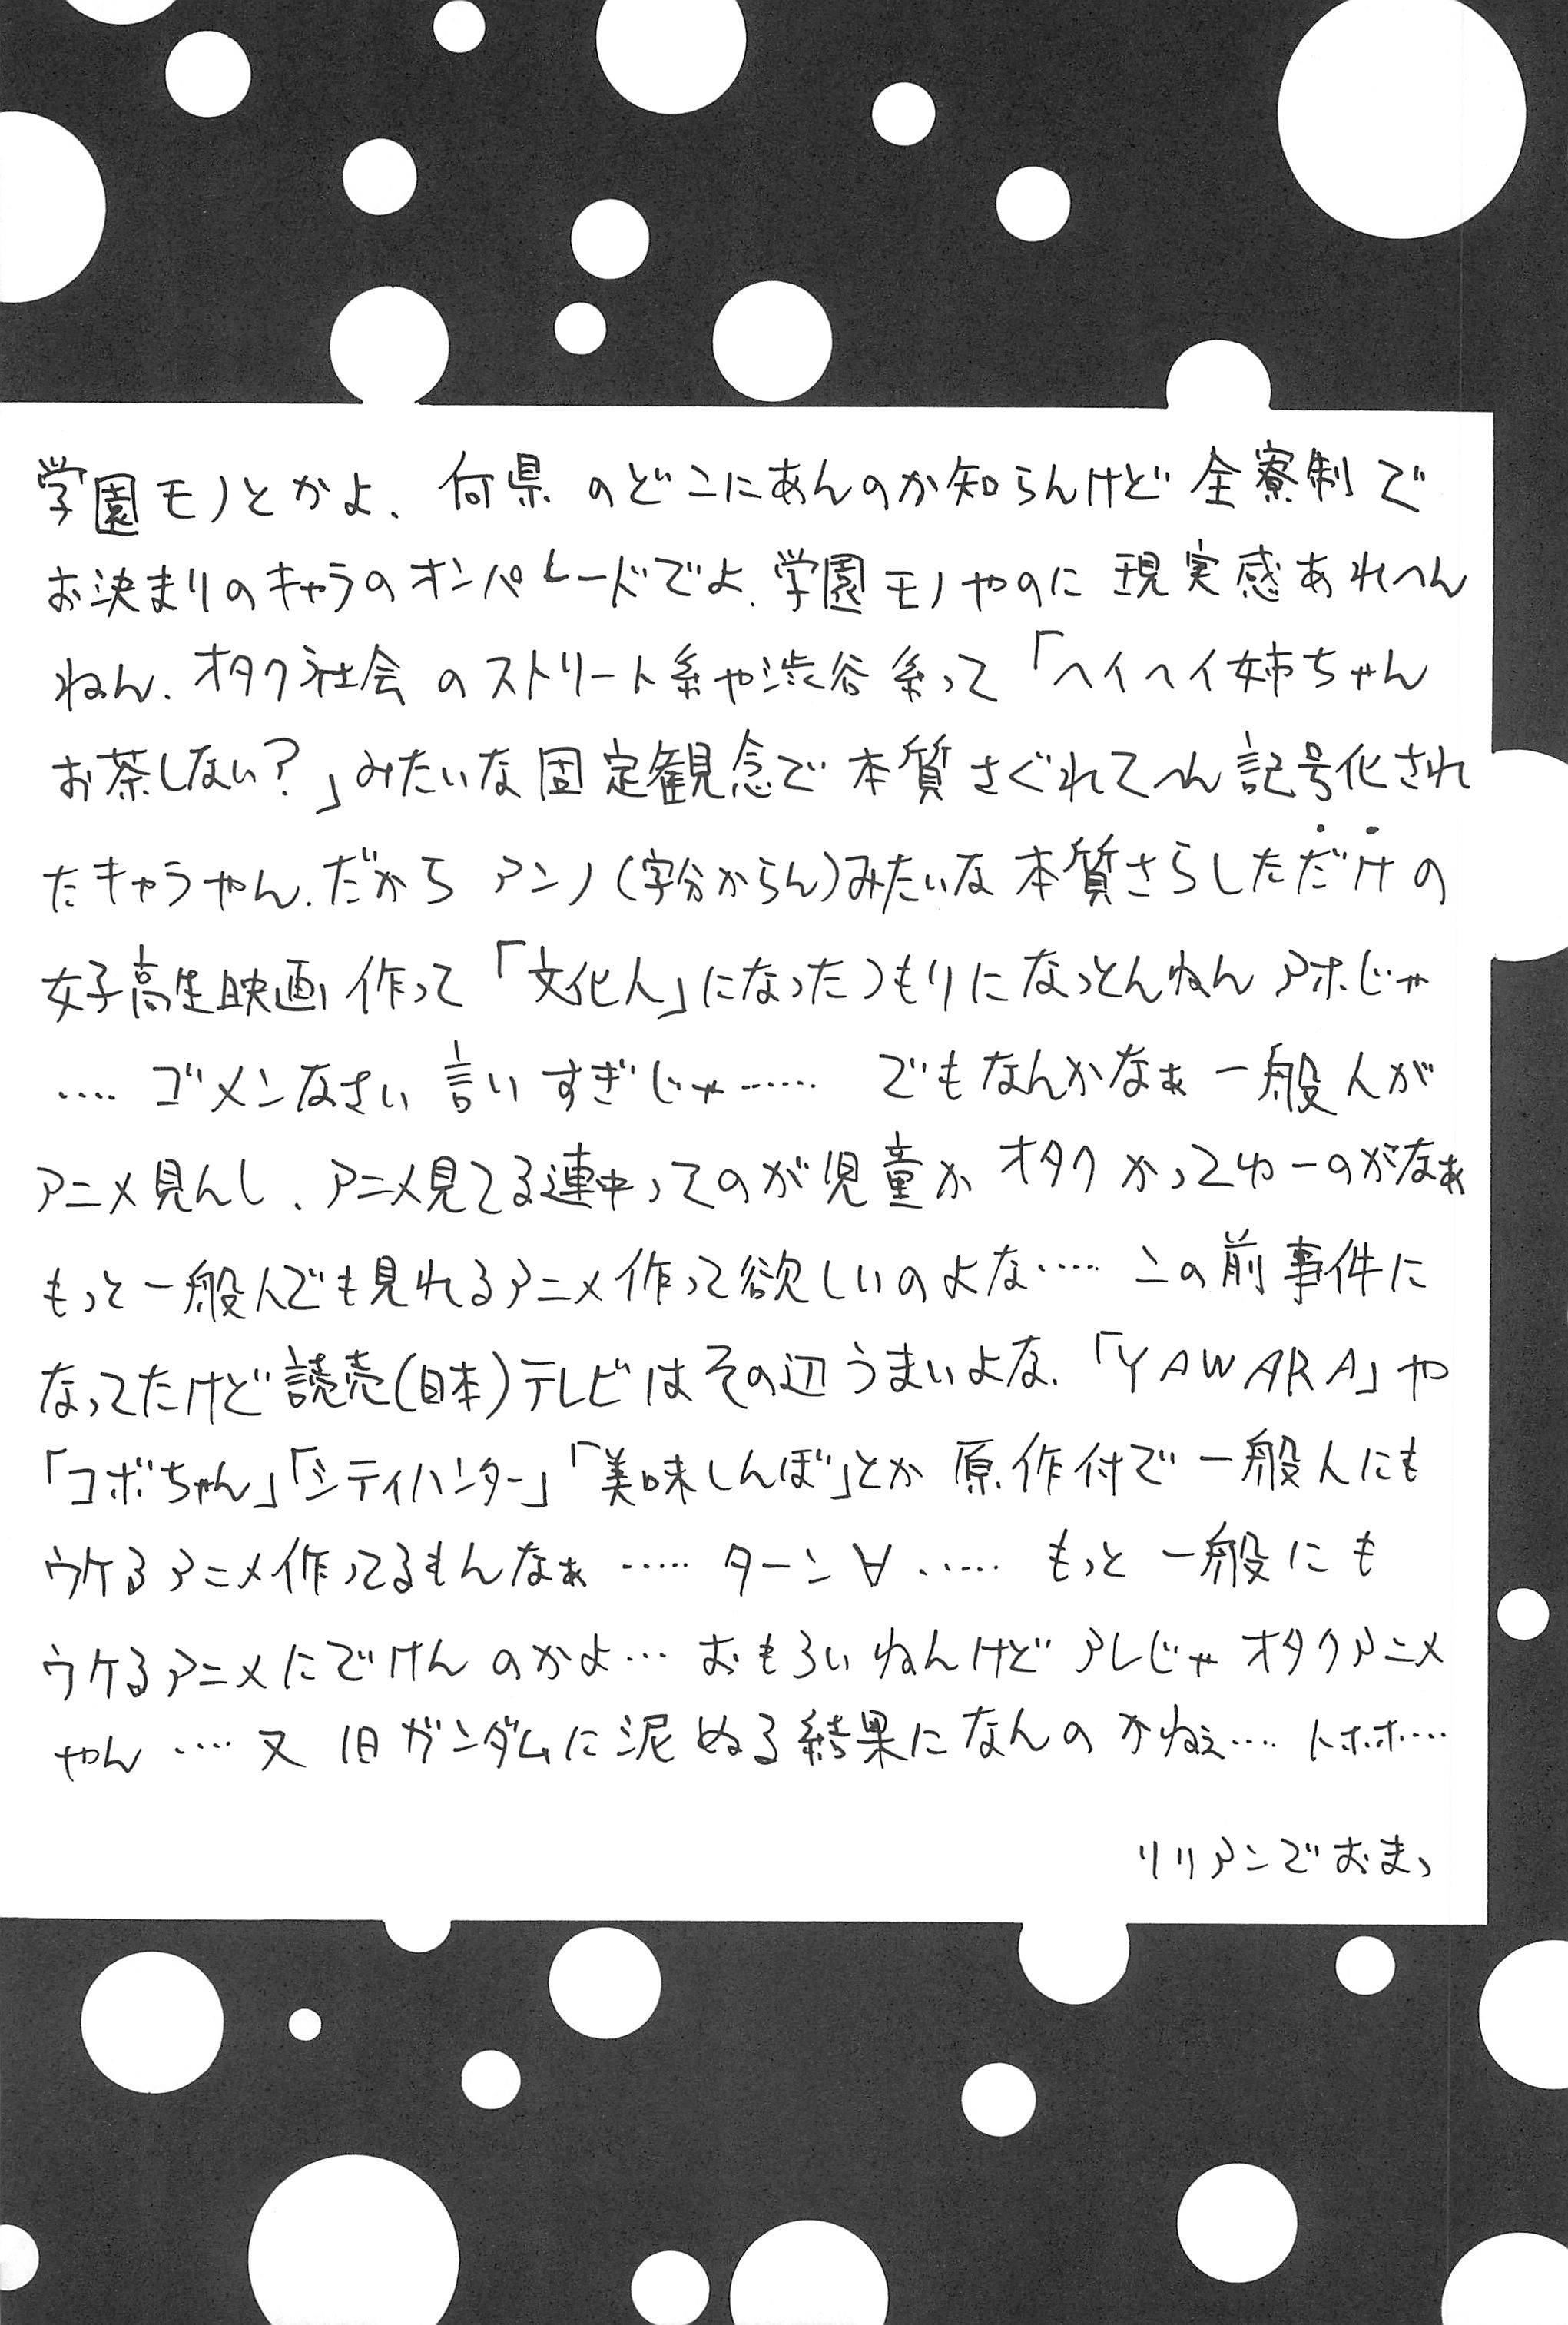 学園モノとかよ、何県のどこにあんのか知らんけど全寮制で
お決まりのキャラのオンパレードでよ、学園モノやのに現実感あれへん
ねん、オタク社会のストリート系や渋谷系って「ヘイヘイ姉ちゃん
お茶しない?」みたいな固定観念で本質さぐれてへん記号化され
たキャラやん、だからアンノ(字分からん)みたいな本質さらしただけの
女子高生映画作って「文化人」になったつもりになっとんねんアホじゃ
‥‥ゴメンなさい言いすぎじゃ‥‥‥でもなんかなぁ一般人が
アニメ見んし、アニメ見てる連中ってのが児童かオタクかってゆーのがなぁ
もっと一般人でも見れるアニメ作って欲しいのよな‥‥‥この前事件に
なってたけど読売(日本)テレビはその辺うまいよな、「YAWARA」や
「コボちゃん」「シティハンター」「美味しんぼ」とか原作付で一般人にも
ウケるアニメ作ってるもんなぁ‥‥‥ターン∀‥‥‥もっと一般にも
ウケるアニメにでけんのかよ…おもろいねんけどアレじゃオタクアニメ
やん‥‥又旧ガンダムに泥ぬる結果になんのかねぇ‥‥トホホ‥‥
リリアンでおまっ